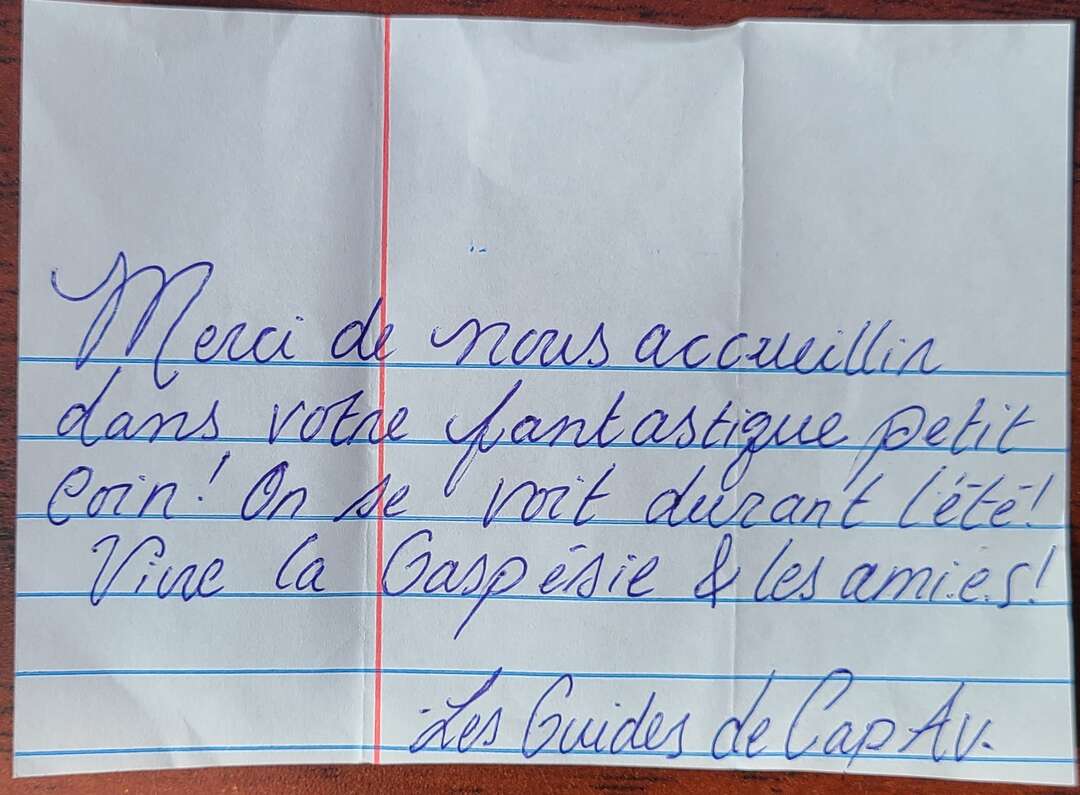 Merci de nous accueillir
dans votre fantastique petit
coin! On se voit durant l'été!
Vive la Gaspésie & les ami.e.s!
-Les Guides de Cap Av.